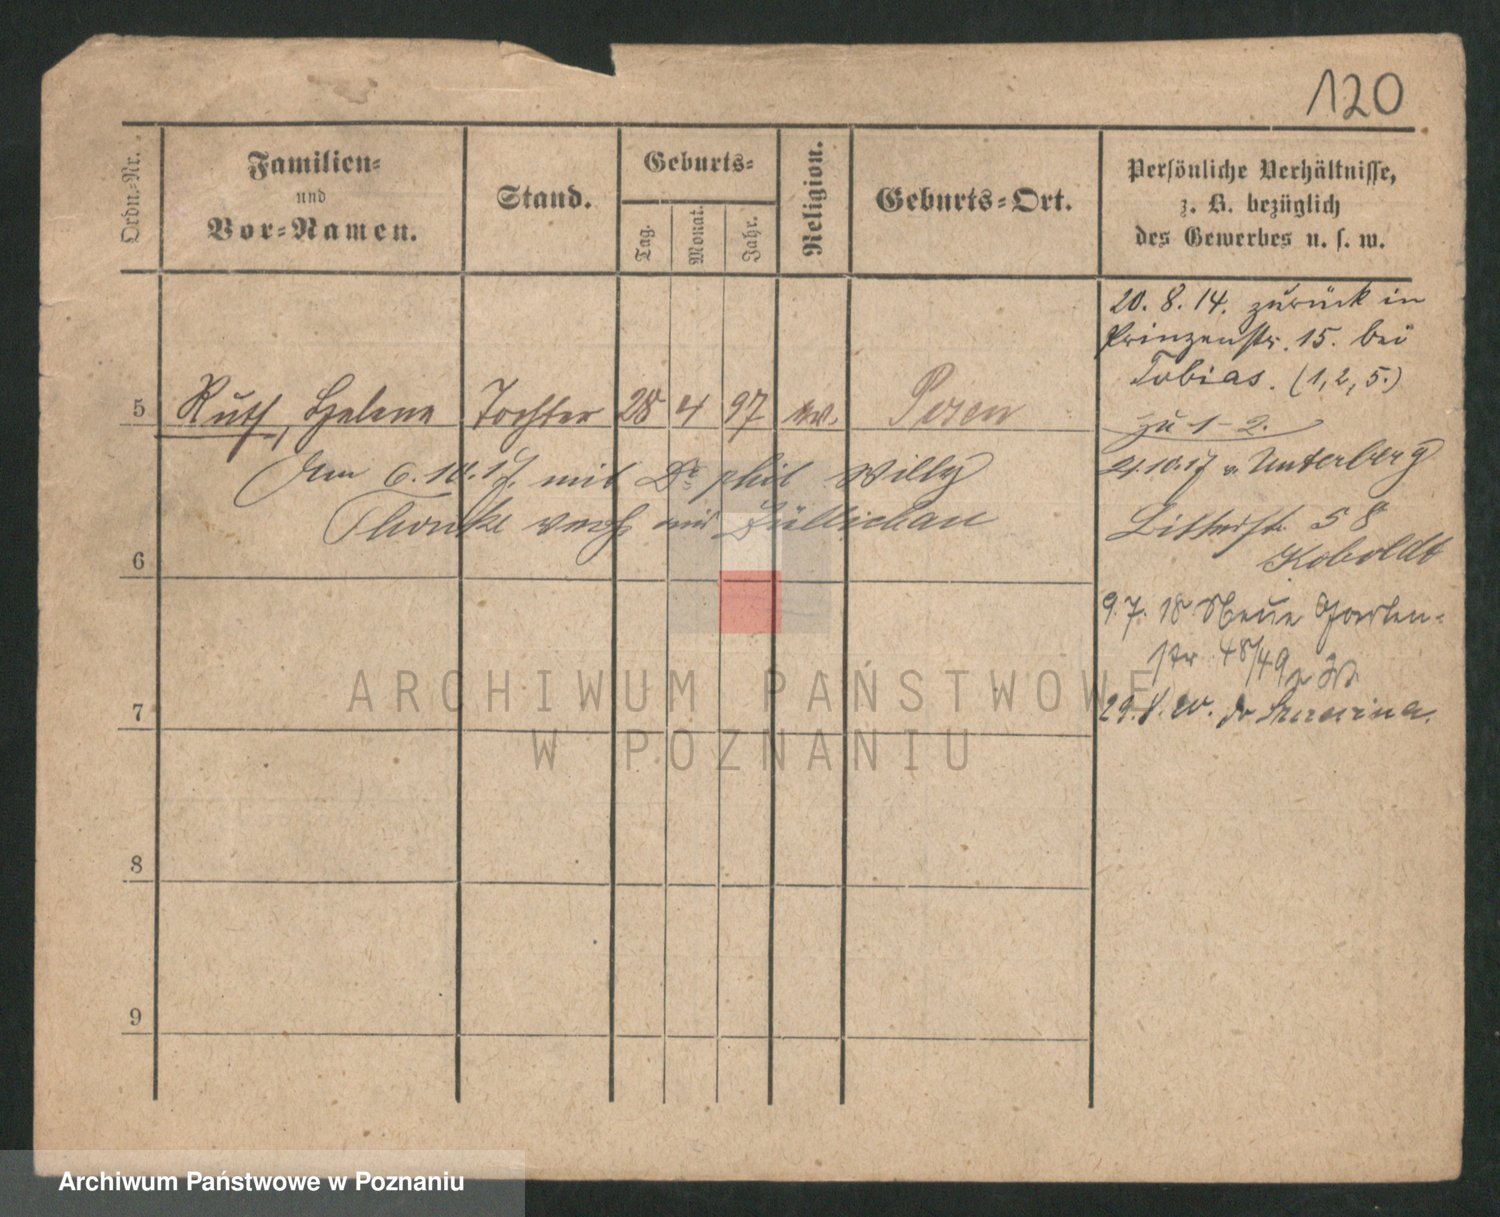 120
Ordn.-Nr.
Familien-
und
Vor-Namen.
Stand.
Geburts-
Tag.
Monat.
Jahr.
Religion.
Geburts-Ort.
Persönliche Verhältnisse,
z. B. bezüglich
des Gewerbes u. s. w.
20. 8. 14. zurück in
Prinzenstr. 15. bei
Tobias. (1, 2, 5.)
5 Ruth, Helene Tochter 28 4 97 ev. Posen
zu 1-2.
Am 6.10.17. mit Dr phil Willy
Thonke verh aus Züllichau
2.10.17 v. Unterberg
58
Koboldt
6
9.7.18 Neue Garten-
str 48/49
29.8.
7
8
9
ARCHIWUM PAŃSTWOWE
W POZNANIU
Archiwum Państwowe w Poznaniu